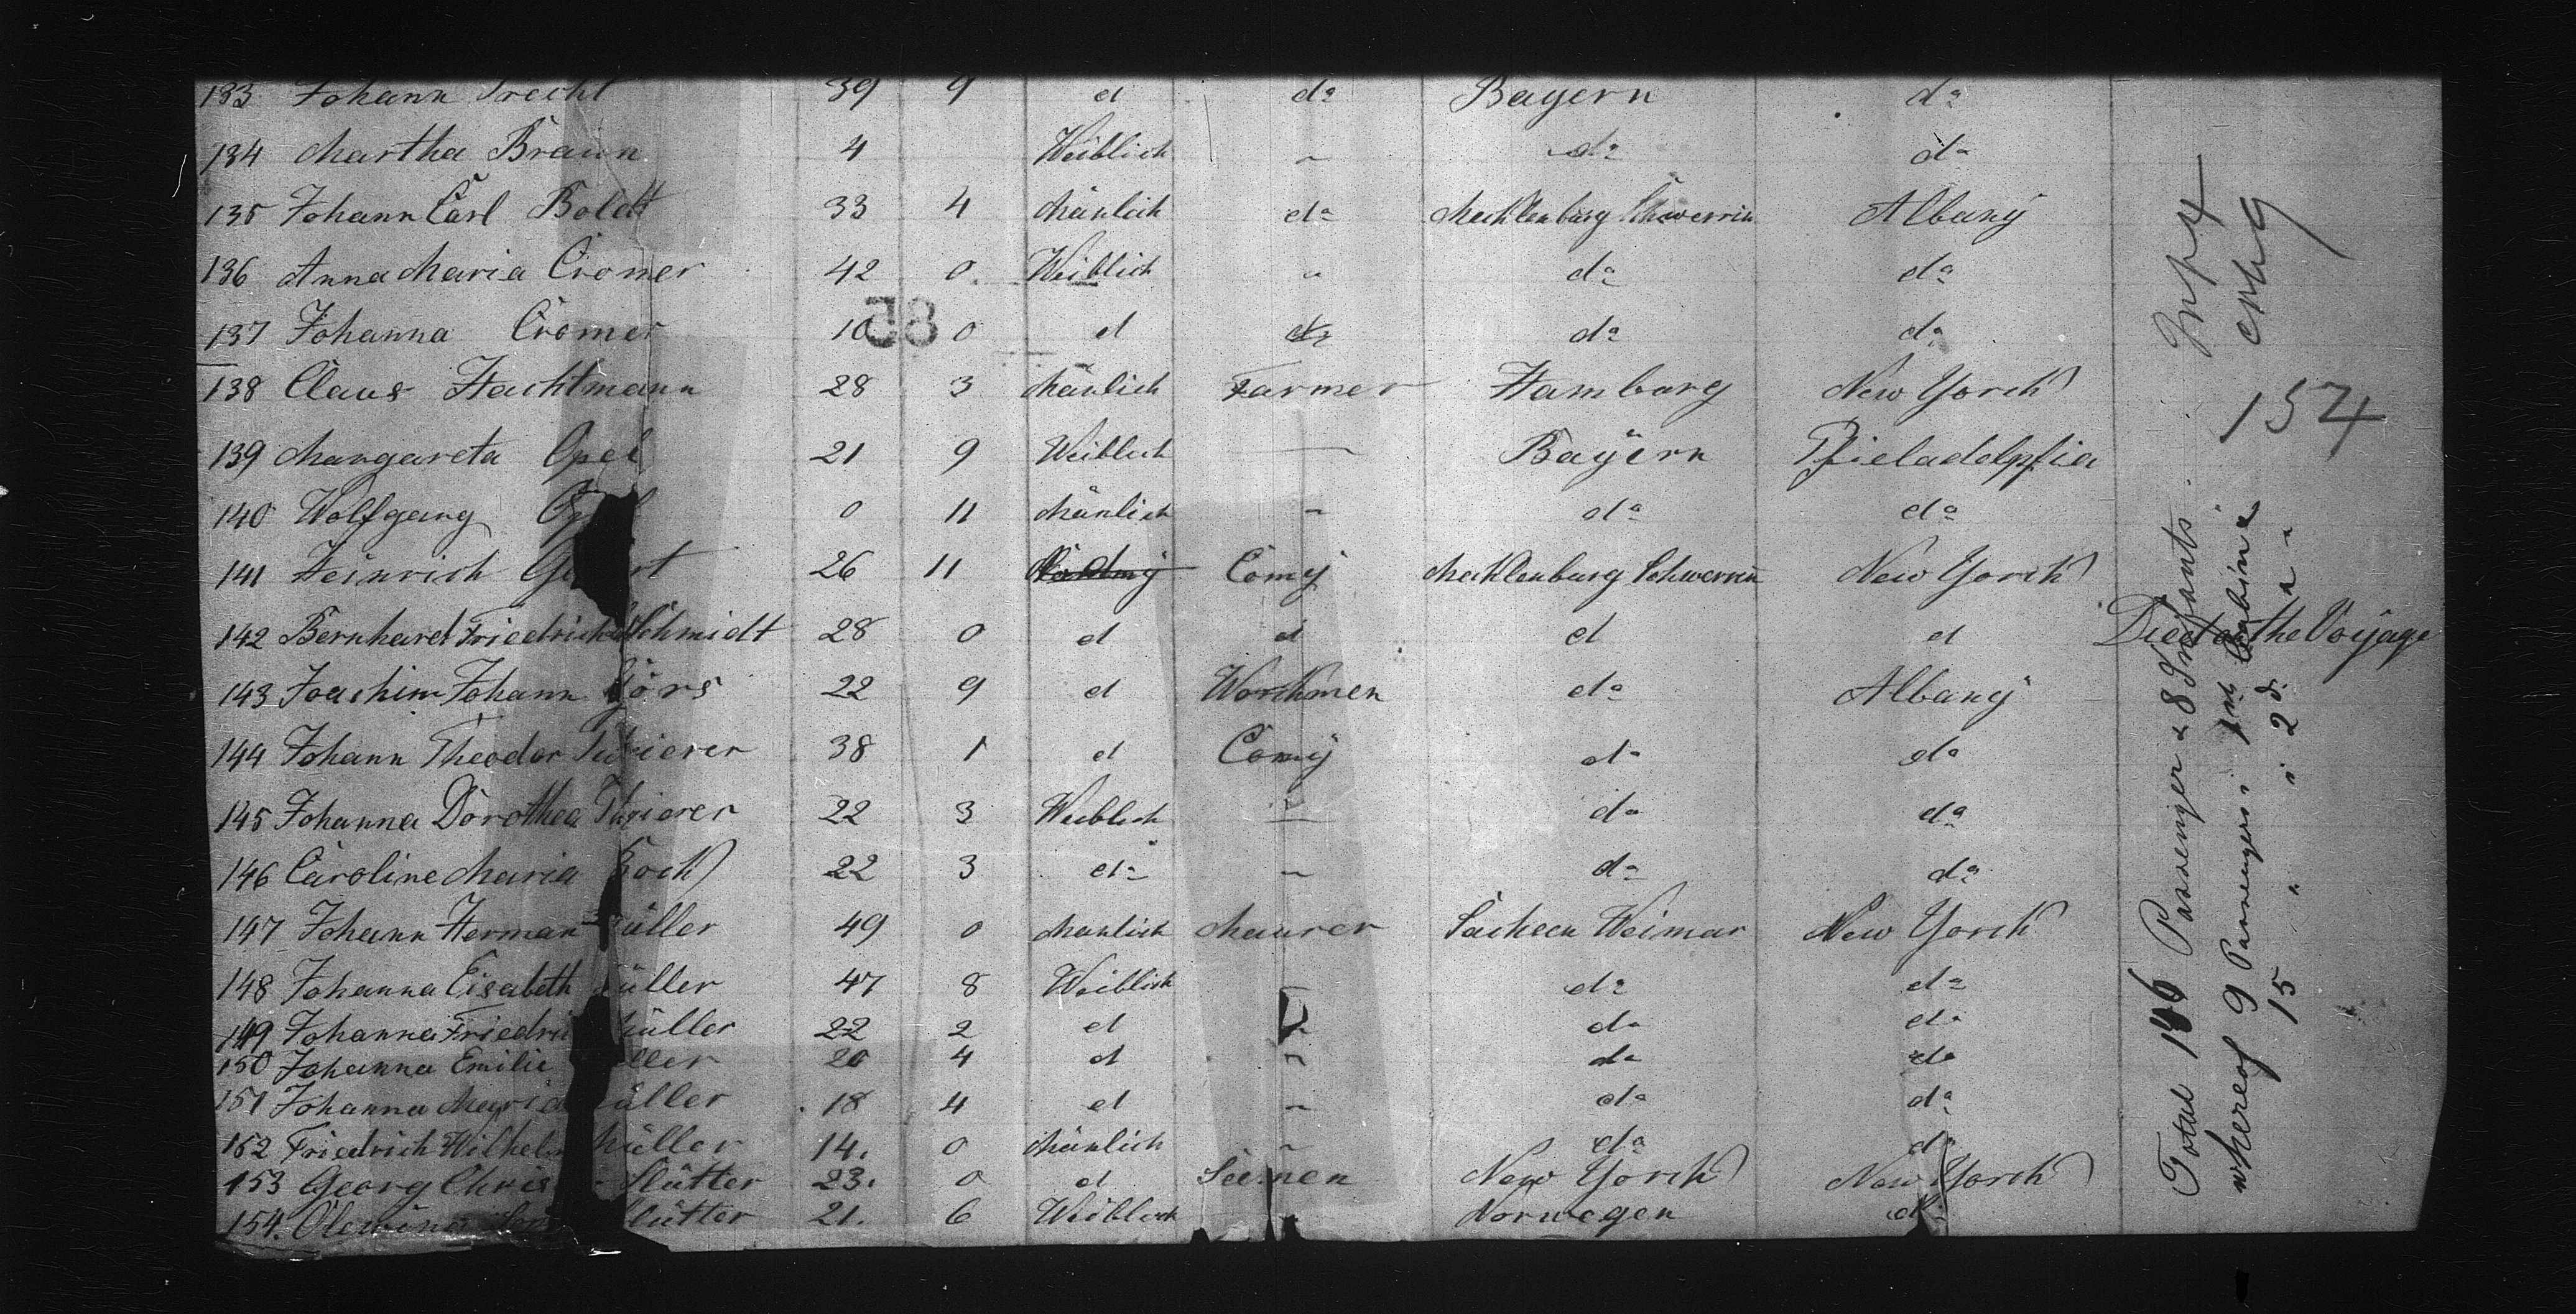 133 Johann 39 9 d do Bayern do
134 Martha Braun 4 Weiblich " do do
135 Johann Carl Boldt 33 4 Mänlich do Mecklenburg Schwerrin Albany
136 Anna Maria Cromer 42 0 Weiblich " do do
137 Johanna Cromer 10 0 d do do do
58
138 Claus Hachtmann 28 3 Mänlich Farmer Hamburg New Yorck
139 Margareta Opel 21 9 Weiblich — Bayern Phieladelphia
140 Wolfgang 0 11 Mänlich " do do
141 Heinrich 26 11 Comy Mecklenburg Schwerrin New Yorck
142 Bernhard Friedrich Schmidt 28 0 d d d d Died on the Voyage
143 Joachim Johann 22 9 d Worckmen do Albany
144 Johann Theodor 38 1 d Comy do do
145 Johanna Dorothea 22 3 Weiblich — do do
146 Caroline Maria Koch 22 3 do " do do
147 Johann Herman Müller 49 0 Mänlich Maurer Sachsen Weimar New Yorck
148 Johanna Eisabeth Müller 47 8 Weiblich do do
149 Johanna Müller 22 2 d " do do
150 Johanna Emilie 20 4 d " do do
151 Johanna Maria Müller 18 4 d " do do
152 Friedrich Wilhelm Müller 14. 0 Mänlich " do do
153 Georg 23. 0 d Seemen New Yorck New Yorck
154. 21. 6 Weiblich " Norwegen do
Total 146 Passenger & 8 Infants
whereof 9 Passengers in 1st Cabin &
15 " in 2d " "
Inf 4
154